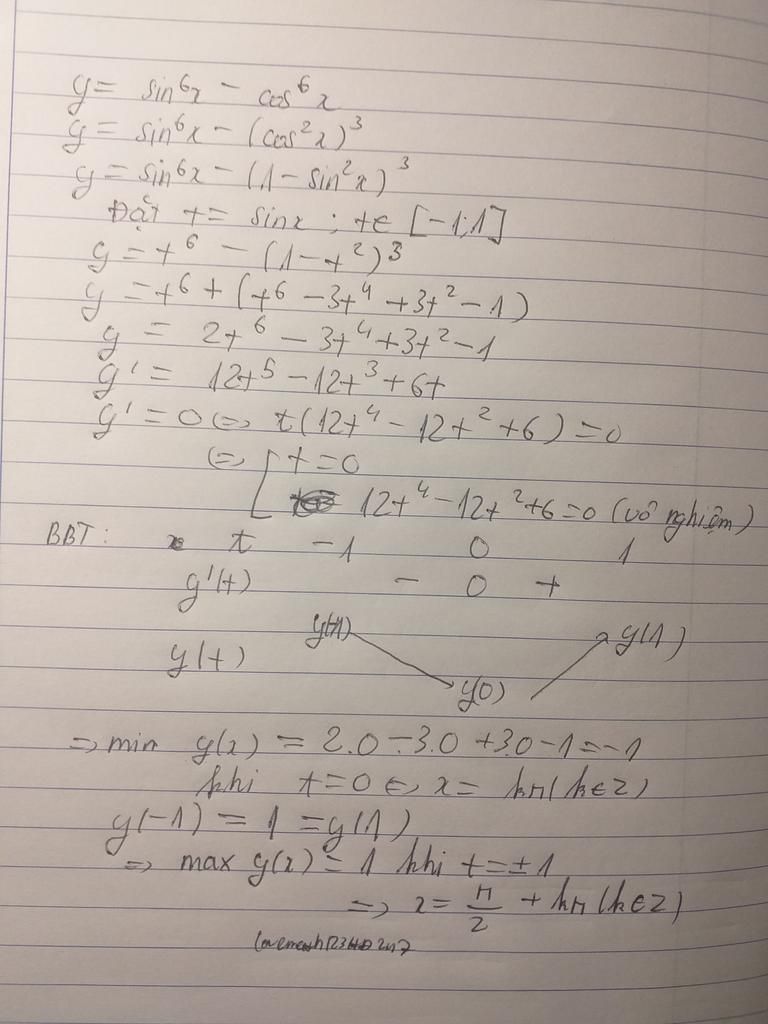 y = sin⁶x - cos⁶x
y = sin⁶x - (cos²x)³
y = sin⁶x - (1 - sin²x)³
Đặt t = sinx ; t ∈ [-1;1]
y = t⁶ - (1 - t²)³
y = t⁶ + (t⁶ - 3t⁴ + 3t² - 1)
y = 2t⁶ - 3t⁴ + 3t² - 1
y' = 12t⁵ - 12t³ + 6t
y' = 0 ⇔ t(12t⁴ - 12t² + 6) = 0
⇔ [ t = 0
12t⁴ - 12t² + 6 = 0 (vô nghiệm)
BBT: t -1 0 1
y'(t) - 0 +
y(-1) y(1)
y(t)
y(0)
⇒ min y(x) = 2.0 - 3.0 + 3.0 - 1 = -1
khi t = 0 ⇔ x = kπ (k ∈ Z)
y(-1) = 1 = y(1)
⇒ max y(x) = 1 khi t = ±1
⇒ x = π/2 + kπ (k ∈ Z)